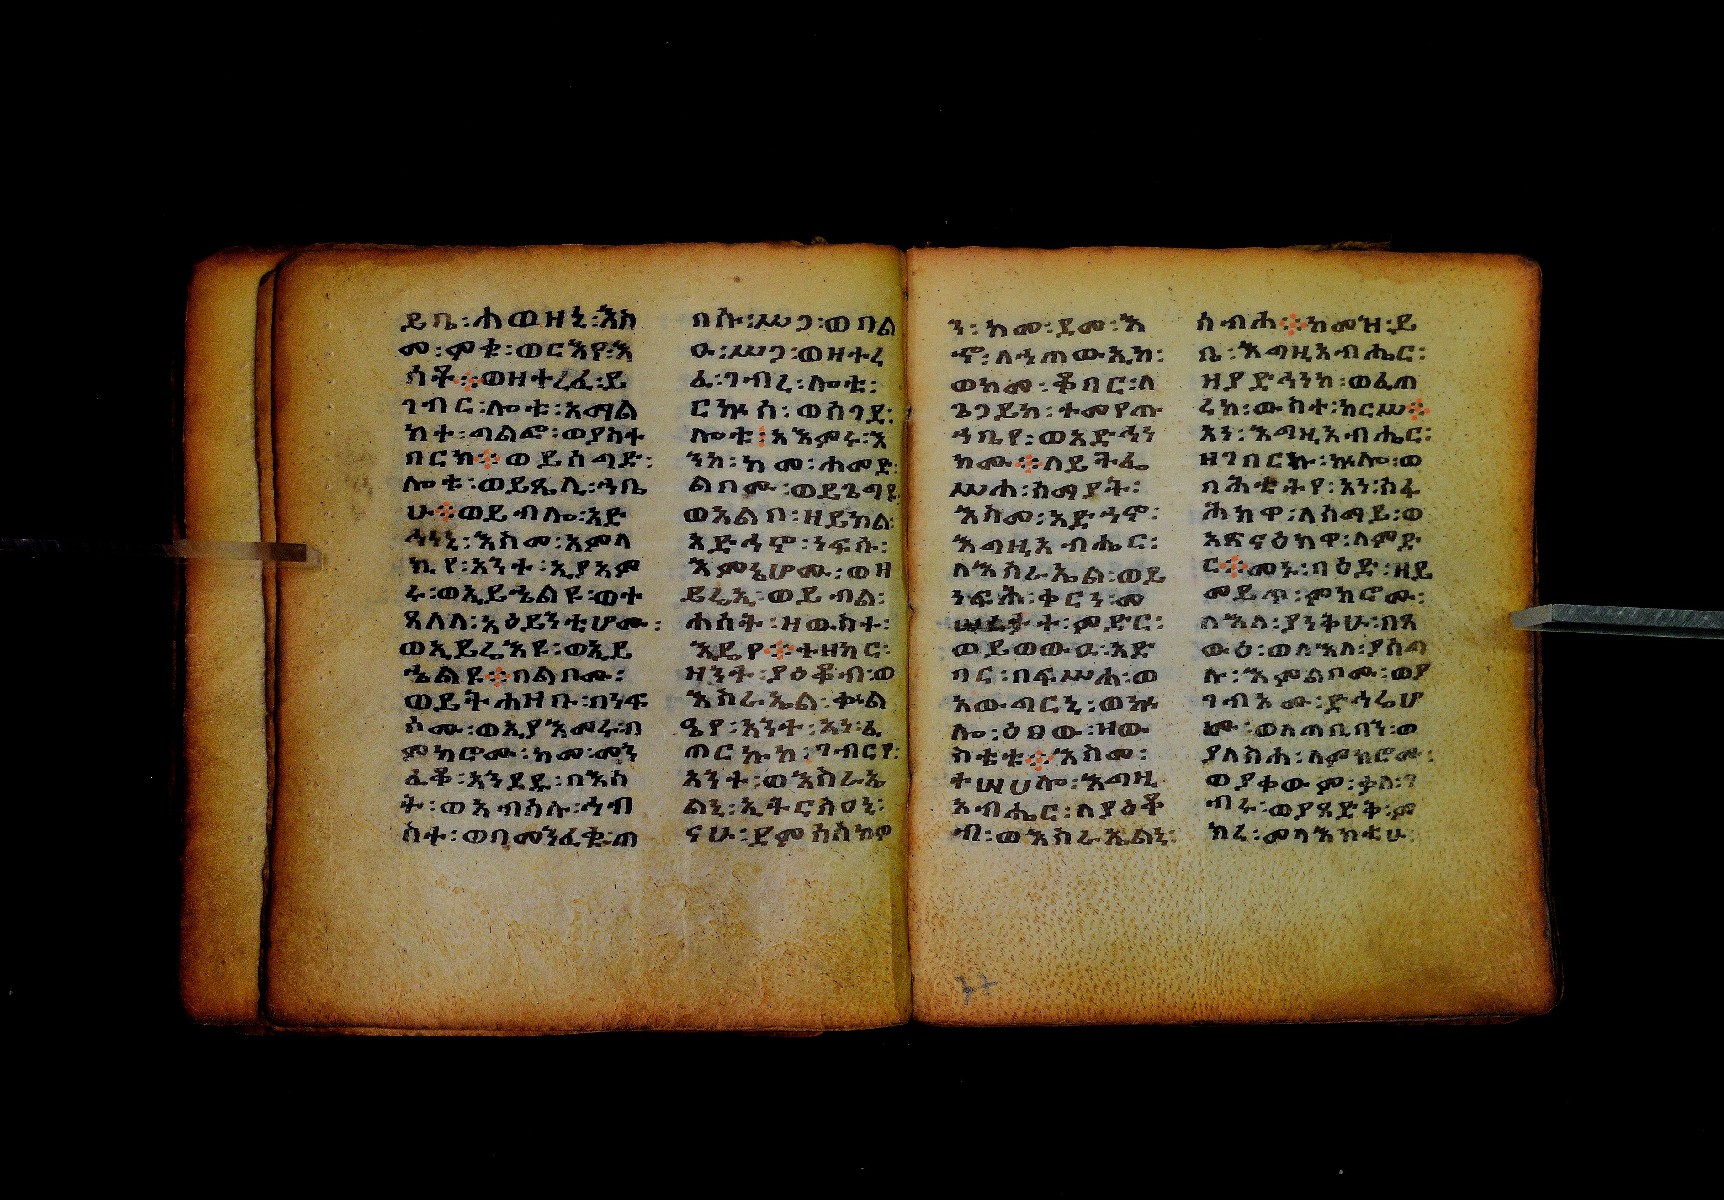 ይቤ፡ሐወዝኒ፡እስ
መ፡ሞቁ፡ወርእየ፡እ
ሳቶ፨ወዘተረፈ፡ይ
ገብር፡ሎቱ፡አማል
ክተ፡ግልፎ፡ወያስተ
በርክ፨ወይሰግድ፡
ሎቱ፡ወይጼሊ፡ኀቤ
ሁ፨ወይብሎ፡አድ
ኅነኒ፡እስመ፡አምላ
ኪየ፡አንተ፡ኢያአም
ሩ፡ወኢይኄልዩ፡ወተ
ጸለለ፡አዕይንቲሆሙ፡
ወኢይሬእዩ፡ወኢይ
ኄልዩ፨በልቦሙ፡
ወይትሐዘቡ፡በነፍ
ሶሙ፡ወኢያእመሩ፡በ
ምክሮሙ፡ከመ፡መን
ፈቆ፡አንደዱ፡በእሳ
ት፡ወአብሰሉ፡ኅብ
ስተ፡ወበመንፈቁ፡ጠ
በሱ፡ሥጋ፡ወበል
ዑ፡ሥጋ፡ወዘተረ
ፈ፡ገብረ፡ሎቱ፡
ርኩሰ፡ወሰገደ፡
ሎቱ፡አእምሩ፡እ
ንከ፡ከመ፡ሐመድ፡
ልቦሙ፡ወይጌግዩ
ወአልቦ፡ዘይክል፡
አድኅኖ፡ነፍሱ፡
እምኔሆሙ፡ወዘ
ይሬኢ፡ወይብል፡
ሐሰት፡ዘውስተ፡
እዴየ፨ተዘከር፡
ዘንተ፡ያዕቆብ፡ወ
እስራኤል፡ቍል
ዔየ፡አንተ፡አነ፡ፈ
ጠርኩከ፡ገብርየ፡
አንተ፡ወእስራኤ
ልኒ፡ኢትርስዐኒ፡
ናሁ፡ደምሰስክዎ
ን፡ከመ፡ደመ፡እ
ኖ፡ለኀጠውኢከ፡
ወከመ፡ቆበር፡ለ
ጌጋይከ፡ተመየጡ
ኀቤየ፡ወአድኅነ
ከሙ፨ለይትፌ
ሥሐ፡ሰማያት፡
እስመ፡አድኀኖ፡
እግዚአብሔር፡
ለእስራኤል፡ወይ
ንፍሑ፡ቀርነ፡መ
ሠረታት፡ምድር፡
ወይወውዑ፡አድ
ባር፡በፍሥሐ፡ወ
አውግርኒ፡ወኵ
ሎ፡ዕፀው፡ዘው
ስቴቱ፨እስመ፡
ተሣሀሎ፡እግዚ
አብሔር፡ለያዕቆ
ብ፡ወእስራኤልኒ፡
ሰብሐ፨ከመዝ፡ይ
ቤ፡እግዚአብሔር፡
ዘያድኅነከ፡ወፈጠ
ረከ፡ውስተ፡ከርሥ፨
አነ፡እግዚአብሔር፡
ዘገበርኩ፡ኵሎ፡ወ
በሕቲትየ፡አነ፡ሰፋ
ሕክዋ፡ለሰማይ፡ወ
አጽናዕክዋ፡ለምድ
ር፨መኑ፡በዕድ፡ዘይ
መይጥ፡ምክሮሙ፡
ለእለ፡ያነትሁ፡በጸ
ውዕ፡ወለእለ፡ያሰግ
ሉ፡እምልቦሙ፡ወያ
ገብኦሙ፡ድኅሬሆ
ሙ፡ወለጠቢባን፡ወ
ያለስሕ፡ለምክሮሙ፡
ወያቀውም፡ቃለ፡ገ
ብሩ፡ወያጸድቅ፡ም
ክረ፡መላእክቲሁ